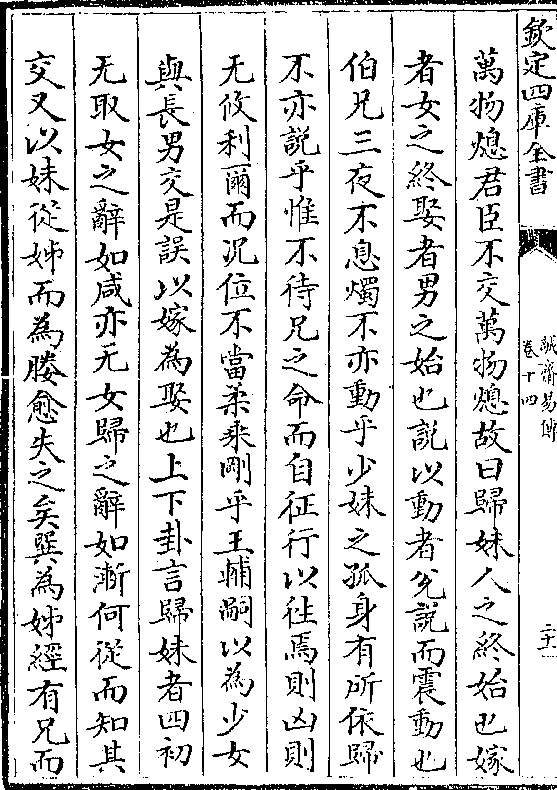 欽定四庫全書
誠齋易傳
卷十四
萬物熄君臣不交萬物熄故曰歸妹人之終始也嫁
者女之終娶者男之始也説以動者兊説而震動也
伯兄三夜不息燭不亦動乎少妹之孤身有所依歸
不亦説乎惟不待兄之命而自征行以徃焉則凶則
无攸利爾而况位不當柔乘剛乎王輔嗣以為少女
與長男交是誤以嫁為娶也上下卦言歸妹者四初
无取女之辭如咸亦无女歸之辭如漸何從而知其
交又以妹從姊而為媵愈失之矣巽為姊經有兄而